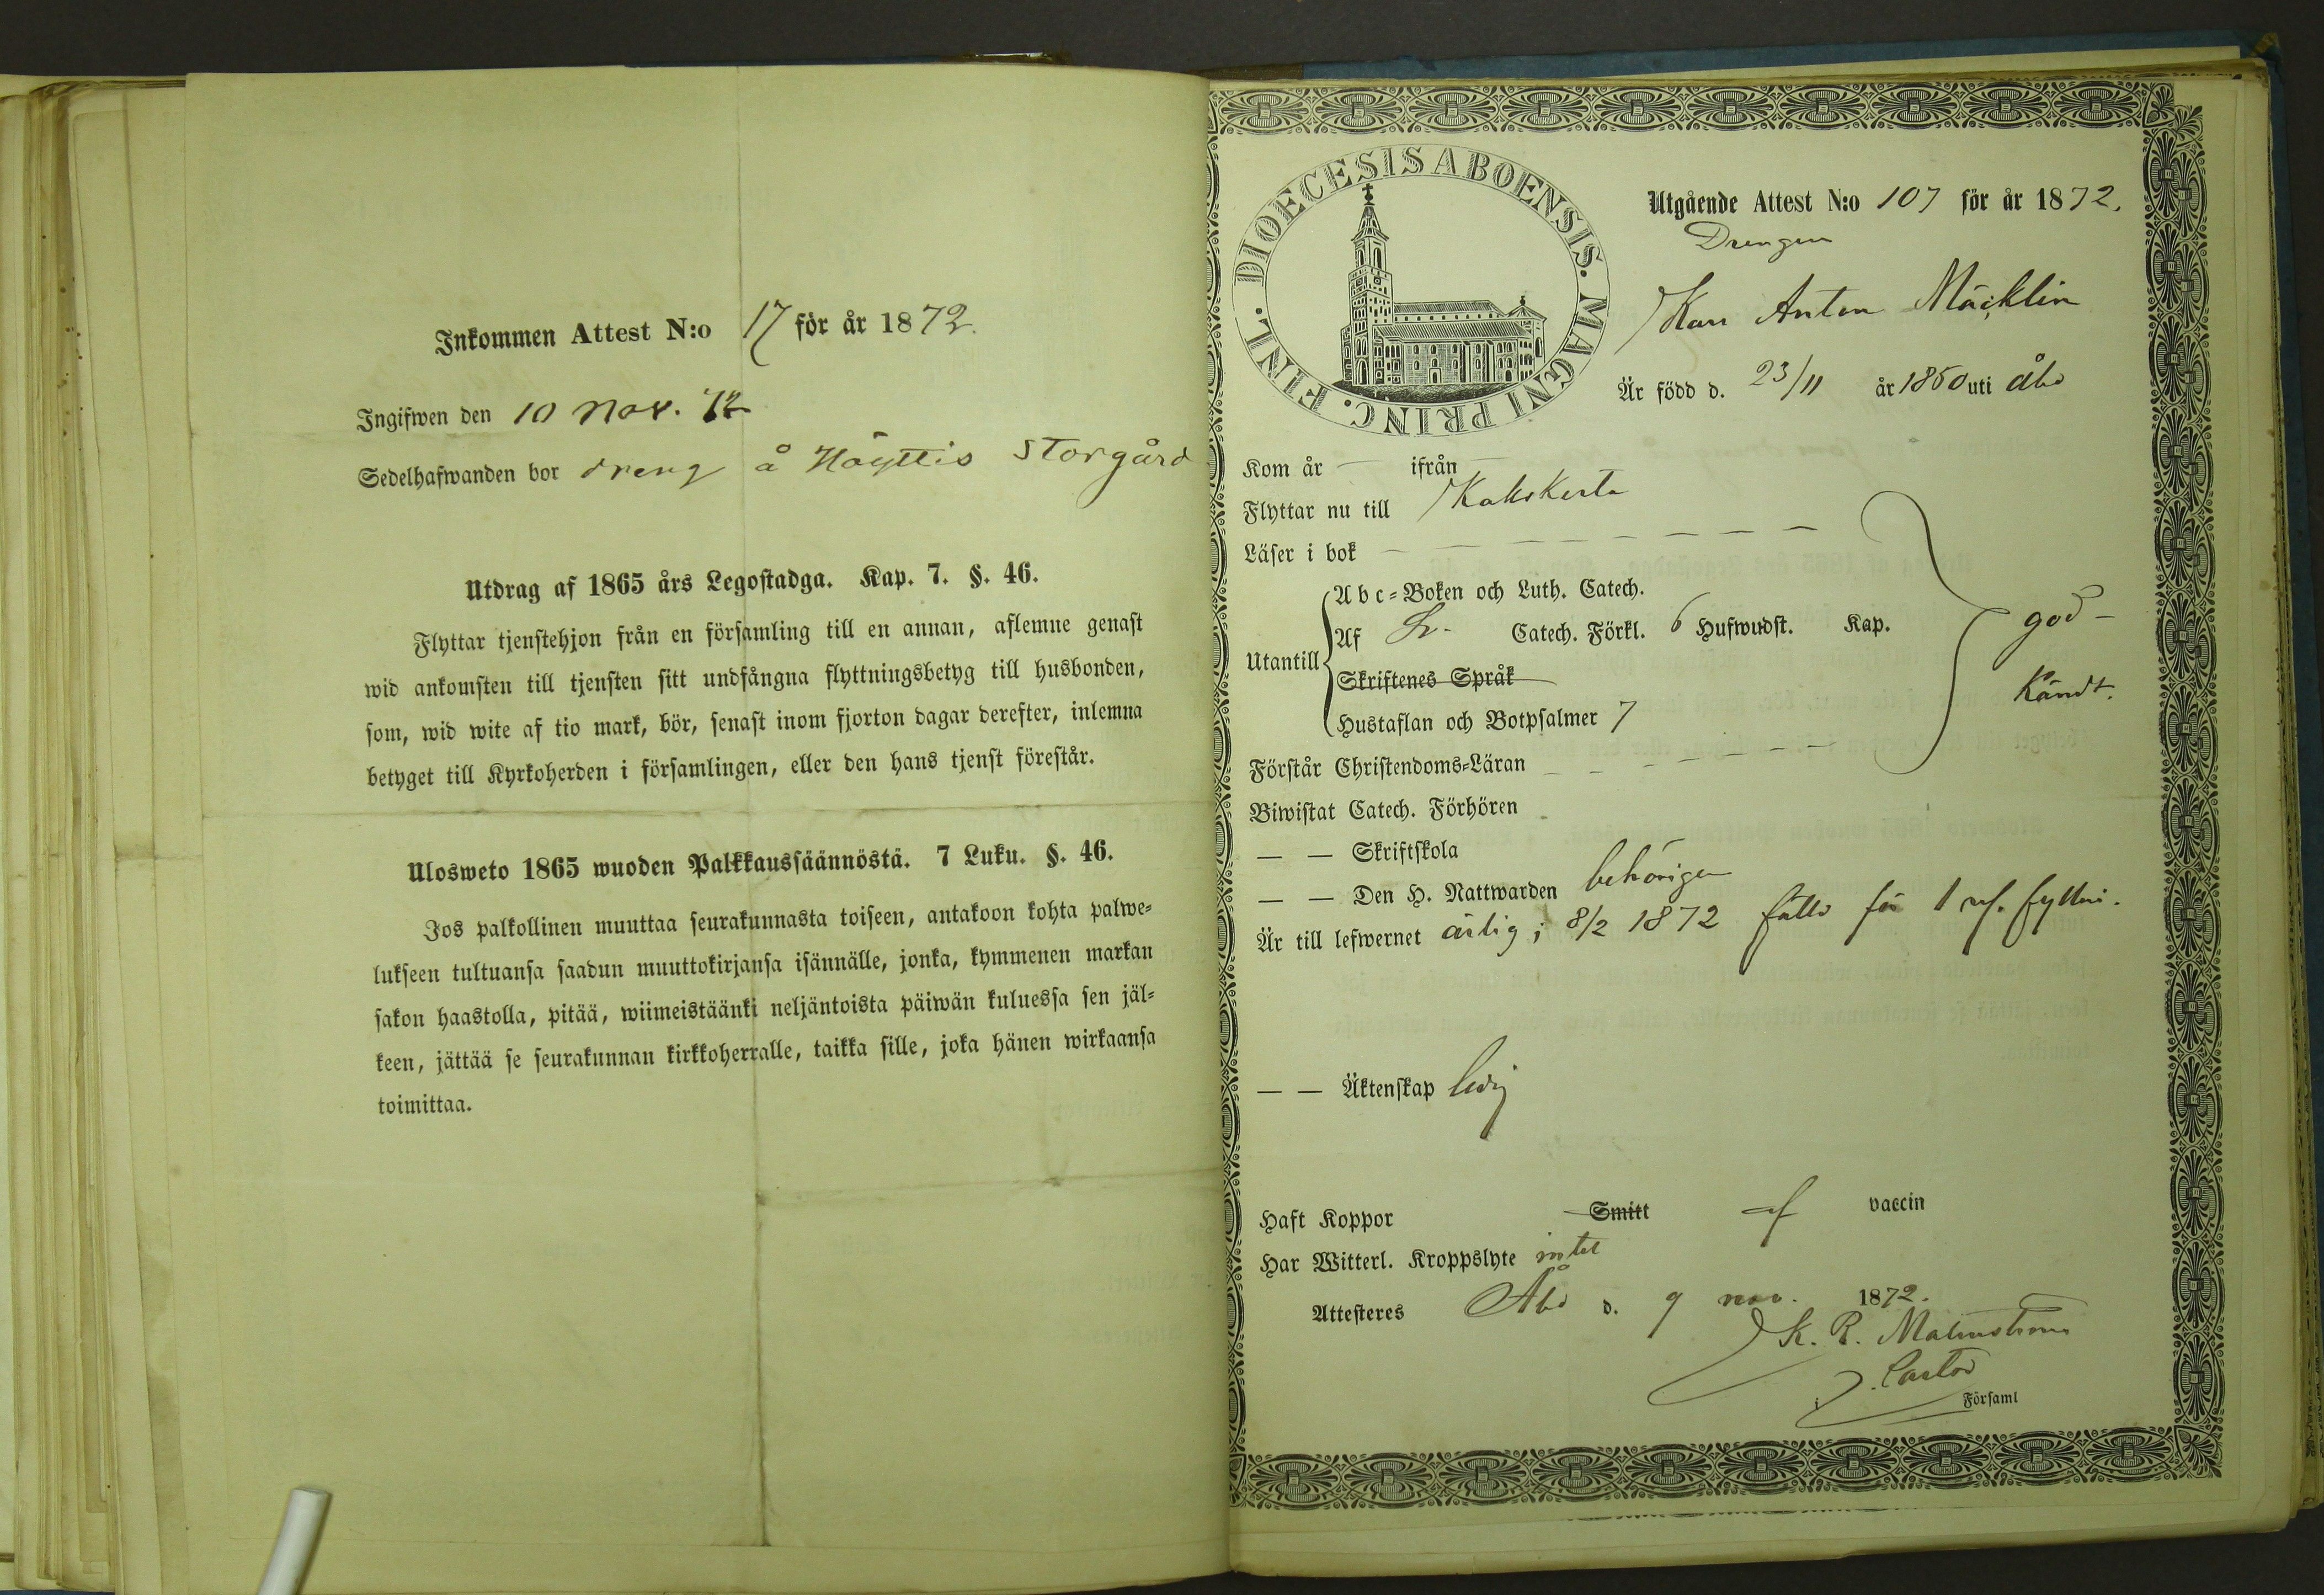 Inkommen Attest N:o 17 för år 1872.
Ingifwen den 10 Nov. 72
Sedelhafwanden bor dreng å Höyttis Storgård
Utdrag af 1865 års Legostadga. Kap. 7. §. 46.
Flyttar tjenstehjon från en församling till en annan, aflemne genast
wid ankomsten till tjensten sitt undfångna flyttningsbetyg till husbonden,
som, wid wite af tio mark, bör, senast inom fjorton dagar derefter, inlemna
betyget till Kyrkoherden i församlingen, eller den hans tjenst förestår.
Ulosweto 1865 wuoden Palkkaussäännöstä. 7 Luku. §. 46.
Jos palkollinen muuttaa seurakunnasta toiseen, antakoon kohta palwe-
lukseen tultuansa saadun muuttokirjansa isännälle, jonka, kymmenen markan
sakon haastolla, pitää, wiimeistäänki neljäntoista päiwän kuluessa sen jäl-
keen, jättää se seurakunnan kirkkoherralle, taikka sille, joka hänen wirkaansa
toimittaa.
DIOECESIS ABOENSIS. MAGNI PRINC. FINL.
Utgående Attest N:o 107 för år 1872.
Drengen
Karl Anton Mäcklin
Är född d. 23/11 år 1850 uti Åbo
Kom år — ifrån —
Flyttar nu till Kakskerta
Läser i bok — — — — — — —
Utantill
Abc-Boken och Luth. Catech.
Af Sv. Catech. Förkl. 6 Hufwudst. Kap.
Skriftenes Språk
Hustaflan och Botpsalmer 7
god-
känd.
Förstår Christendoms-Läran — — — — — —
Biwistat Catech. Förhören
— — Skriftskola
— — Den H. Nattwarden behörigen
Är till lefwernet ärlig; 8/2 1872 fälld för 1 rs. fylleri.
— — Äktenskap ledig
Haft Koppor Smitt af vaccin
Har Witterl. Kroppslyte intet
Attesteres Åbo d. 9 nov. 1872.
K. R. Malmström
Pastor
i Församl